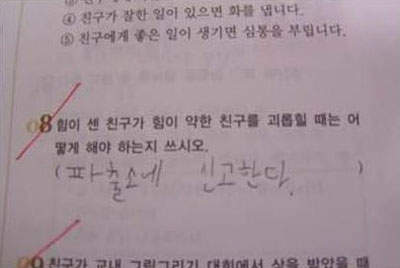 ④ 친구가 잘한 일이 있으면 화를 냅니다.
⑤ 친구에게 좋은 일이 생기면 심통을 부립니다.
08 힘이 센 친구가 힘이 약한 친구를 괴롭힐 때는 어
떻게 해야 하는지 쓰시오.
( 파출소에 신고한다. )
09 친구가 교내 그림그리기 대회에서 상을 받았을 때